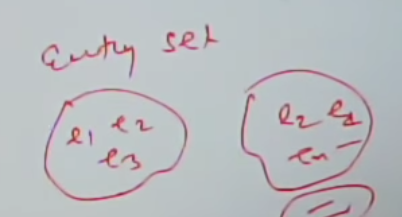 Entity set
e1 e2
e3
e2 e1
en —